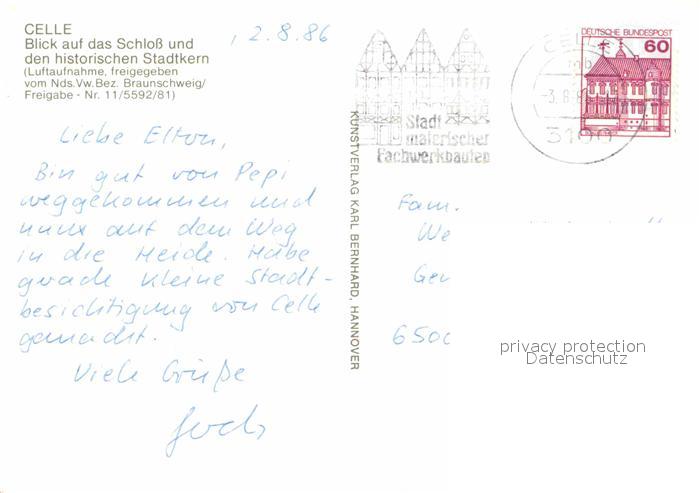 CELLE
Blick auf das Schloß und
den historischen Stadtkern
(Luftaufnahme, freigegeben
vom Nds.Vw.Bez. Braunschweig/
Freigabe - Nr. 11/5592/81)
, 2.8.86
Liebe Eltern,
Bin gut von Pepi
weggekommen und
nun auf dem Weg
in die Heide. Habe
gerade kleine Stadt-
besichtigung von Celle
gemacht.
Viele Grüße
KUNSTVERLAG KARL BERNHARD, HANNOVER
Stadt
malerischer
Fachwerkbauten
CELLE
mb
-3.8.8
3100
DEUTSCHE BUNDESPOST
60
Fam.
We
Ger
6500
privacy protection
Datenschutz